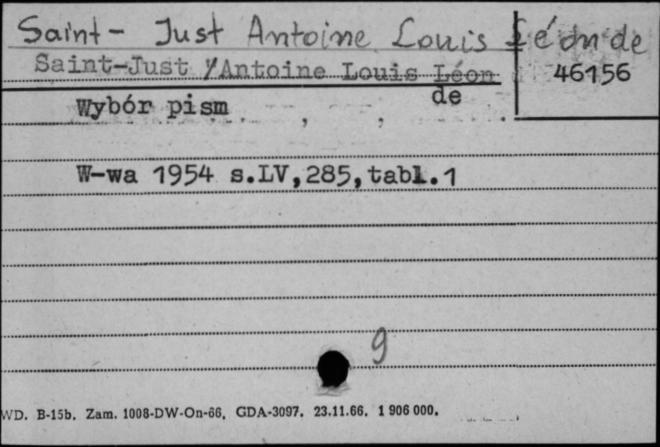 Saint- Just Antoine Louis Léon de
Saint-Just /Antoine Louis Léon
46156
de
Wybór pism
W-wa 1954 s.LV,285,tabl.1
9
WD. B-15b. Zam. 1008-DW-On-66. GDA-3097. 23.11.66. 1 906 000.